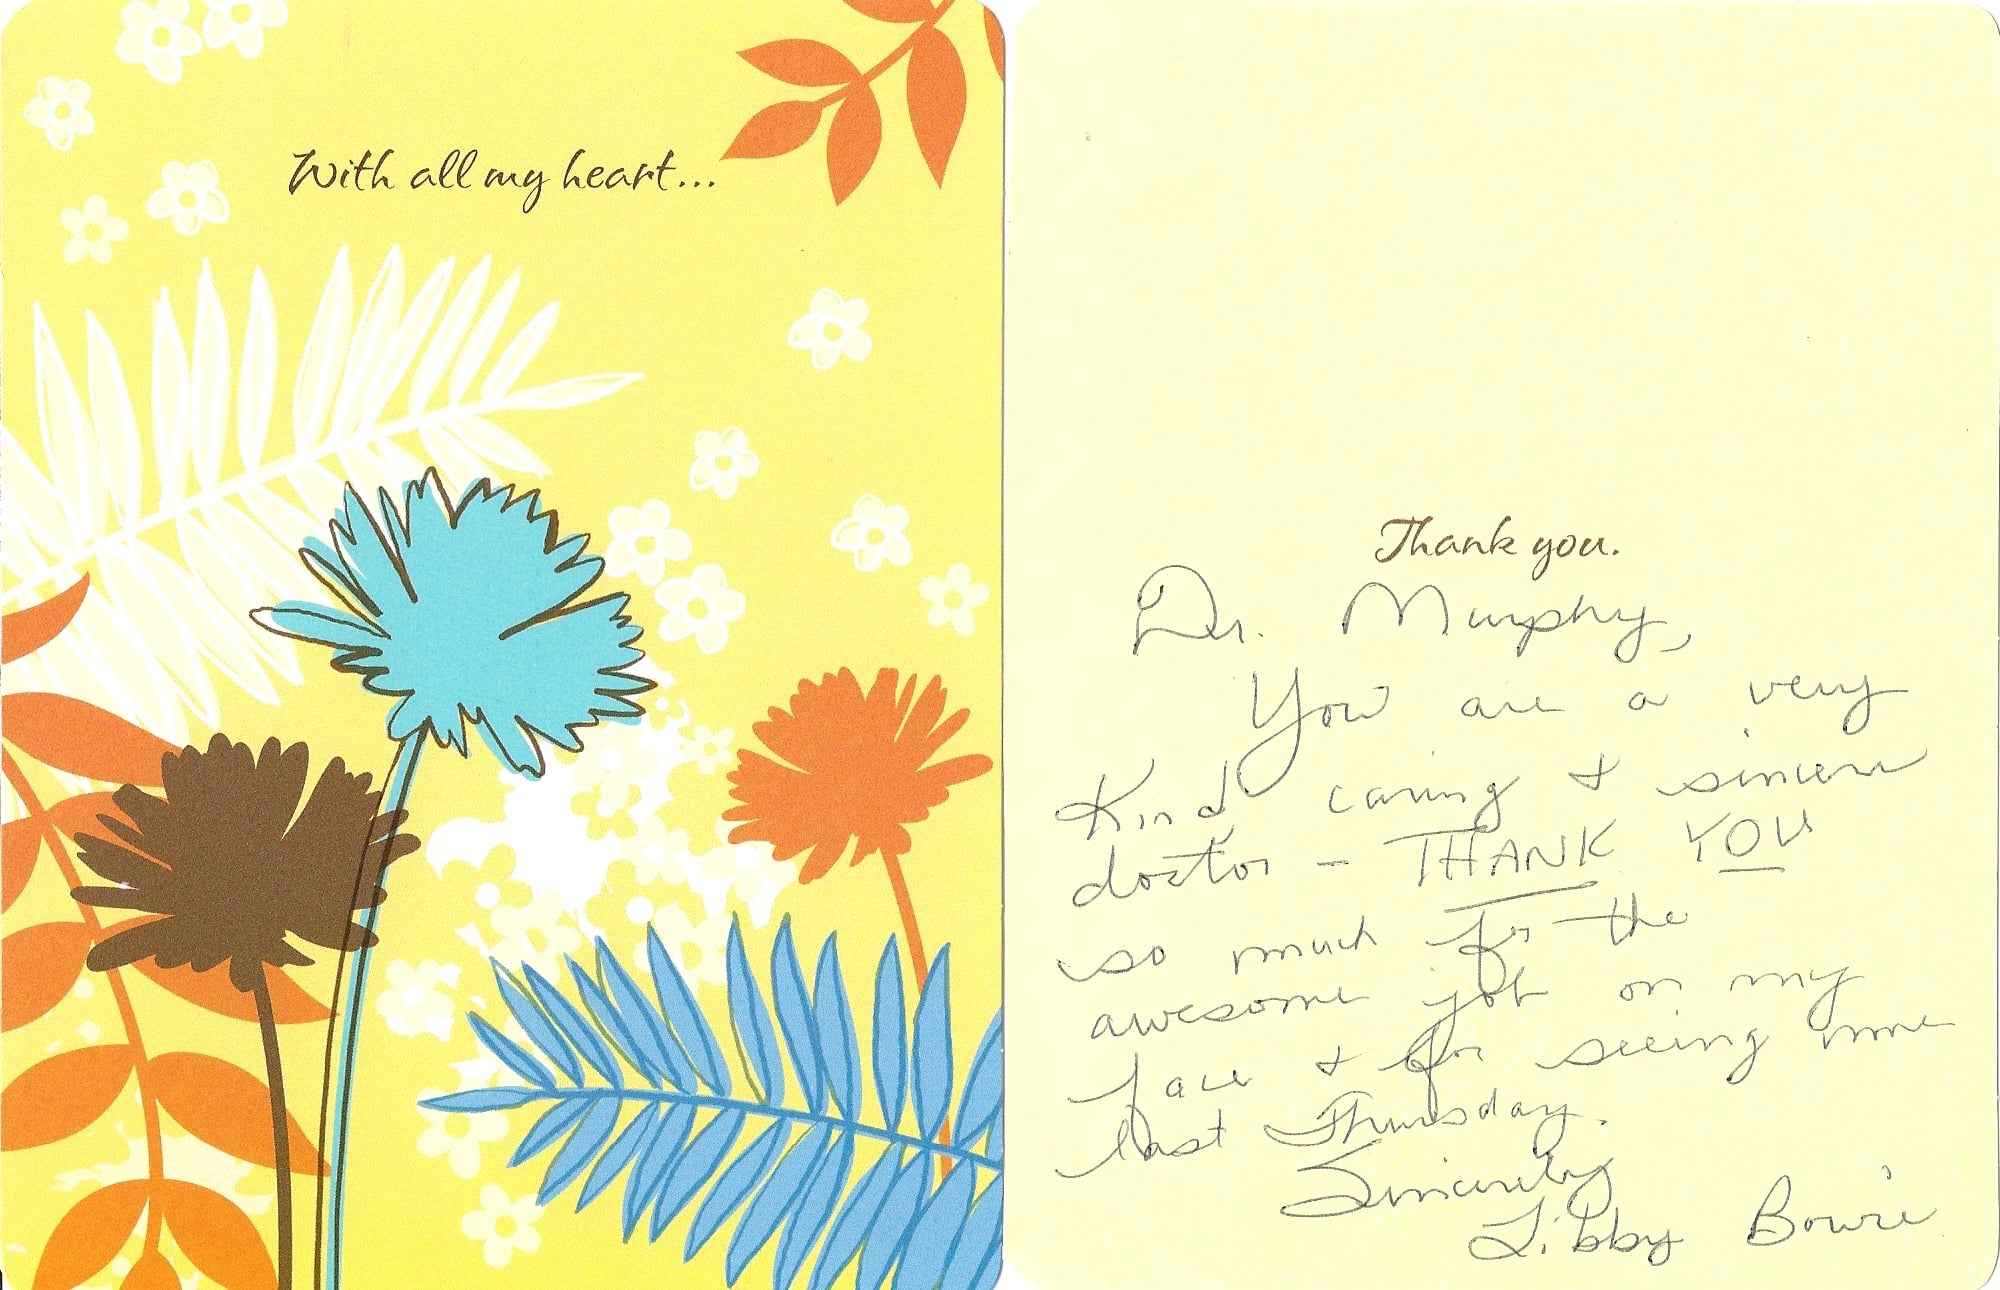 With all my heart...
Thank you.
Dr. Murphy,
You are a very
Kind caring & sincere
doctor - THANK YOU
so much for the
awesome job on my
face & for seeing me
last Thursday.
Sincerely
Libby Bowie